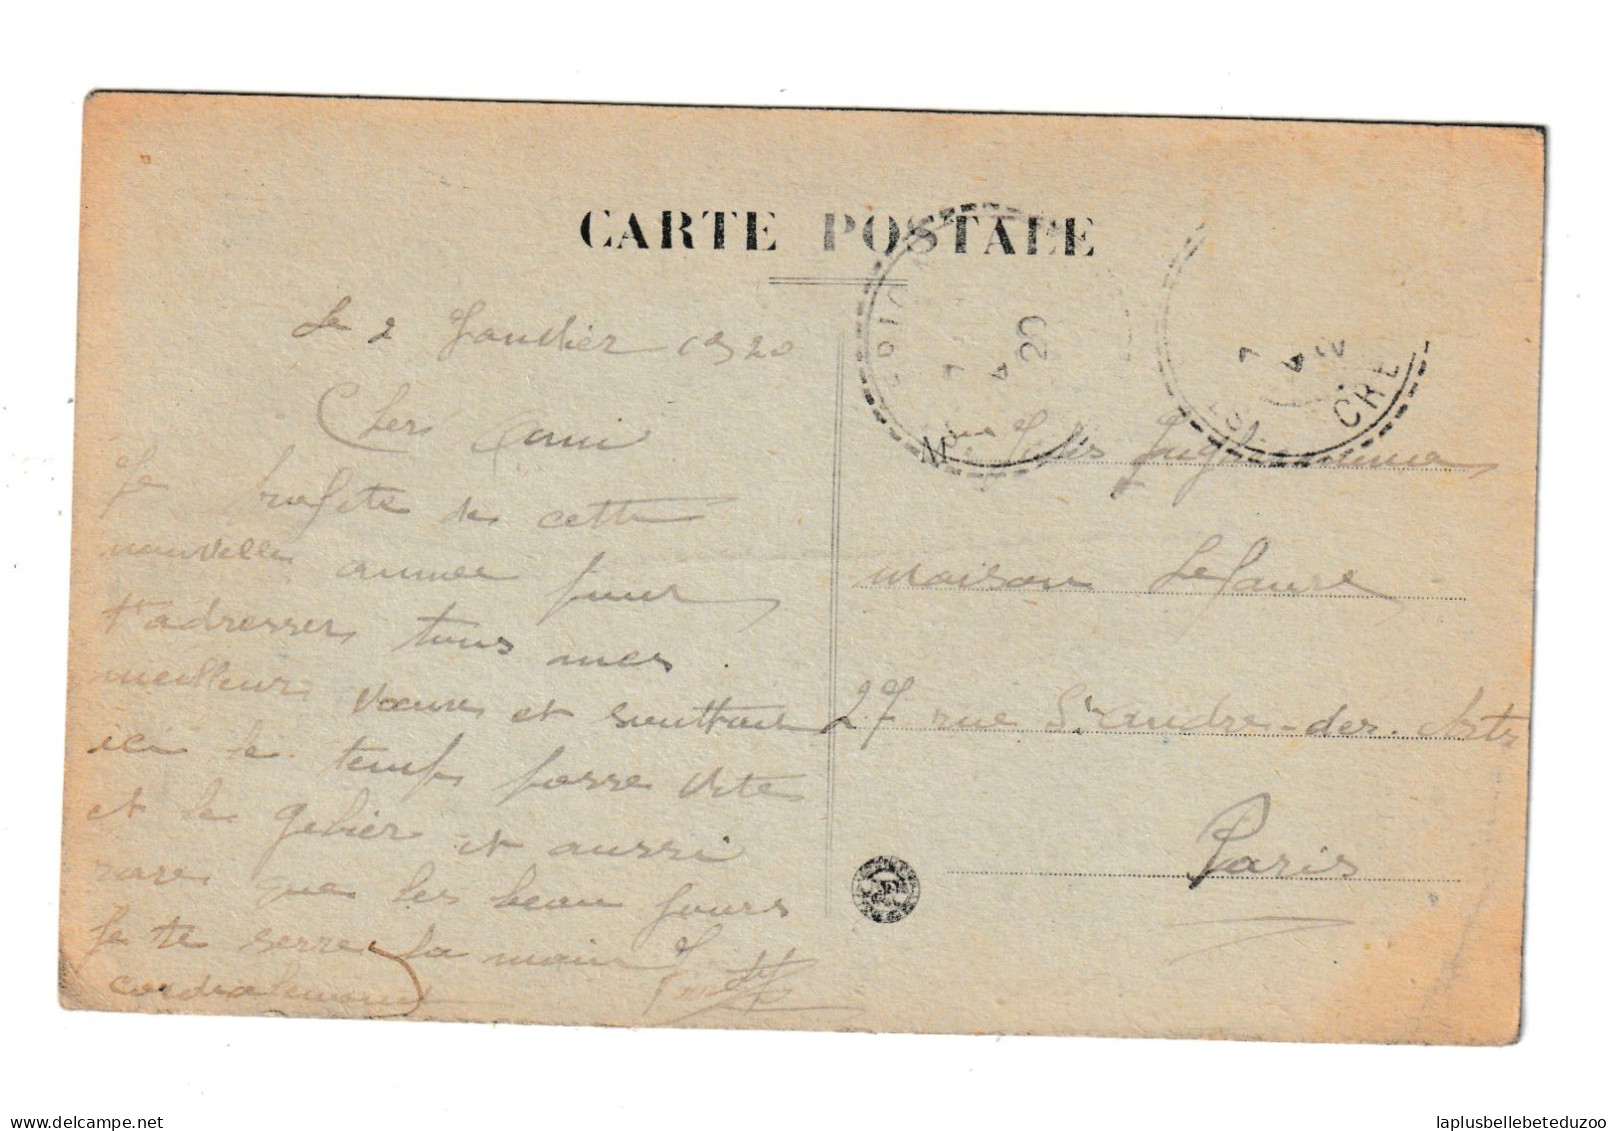 CARTE POSTALE
Le 2 Janvier 1920
Cher Ami
Je profite de cette
nouvelle année pour
t'adresser tous mes
meilleurs voeux et surtout
ici le temps passe vite
et le gibier et aussi
rare que les beau jours
Je te serre la main
cordialement
20
CRE
Mr
maison Lefaure
27 rue St andre-des-Arts
Paris
laplusbellebeteduzoo